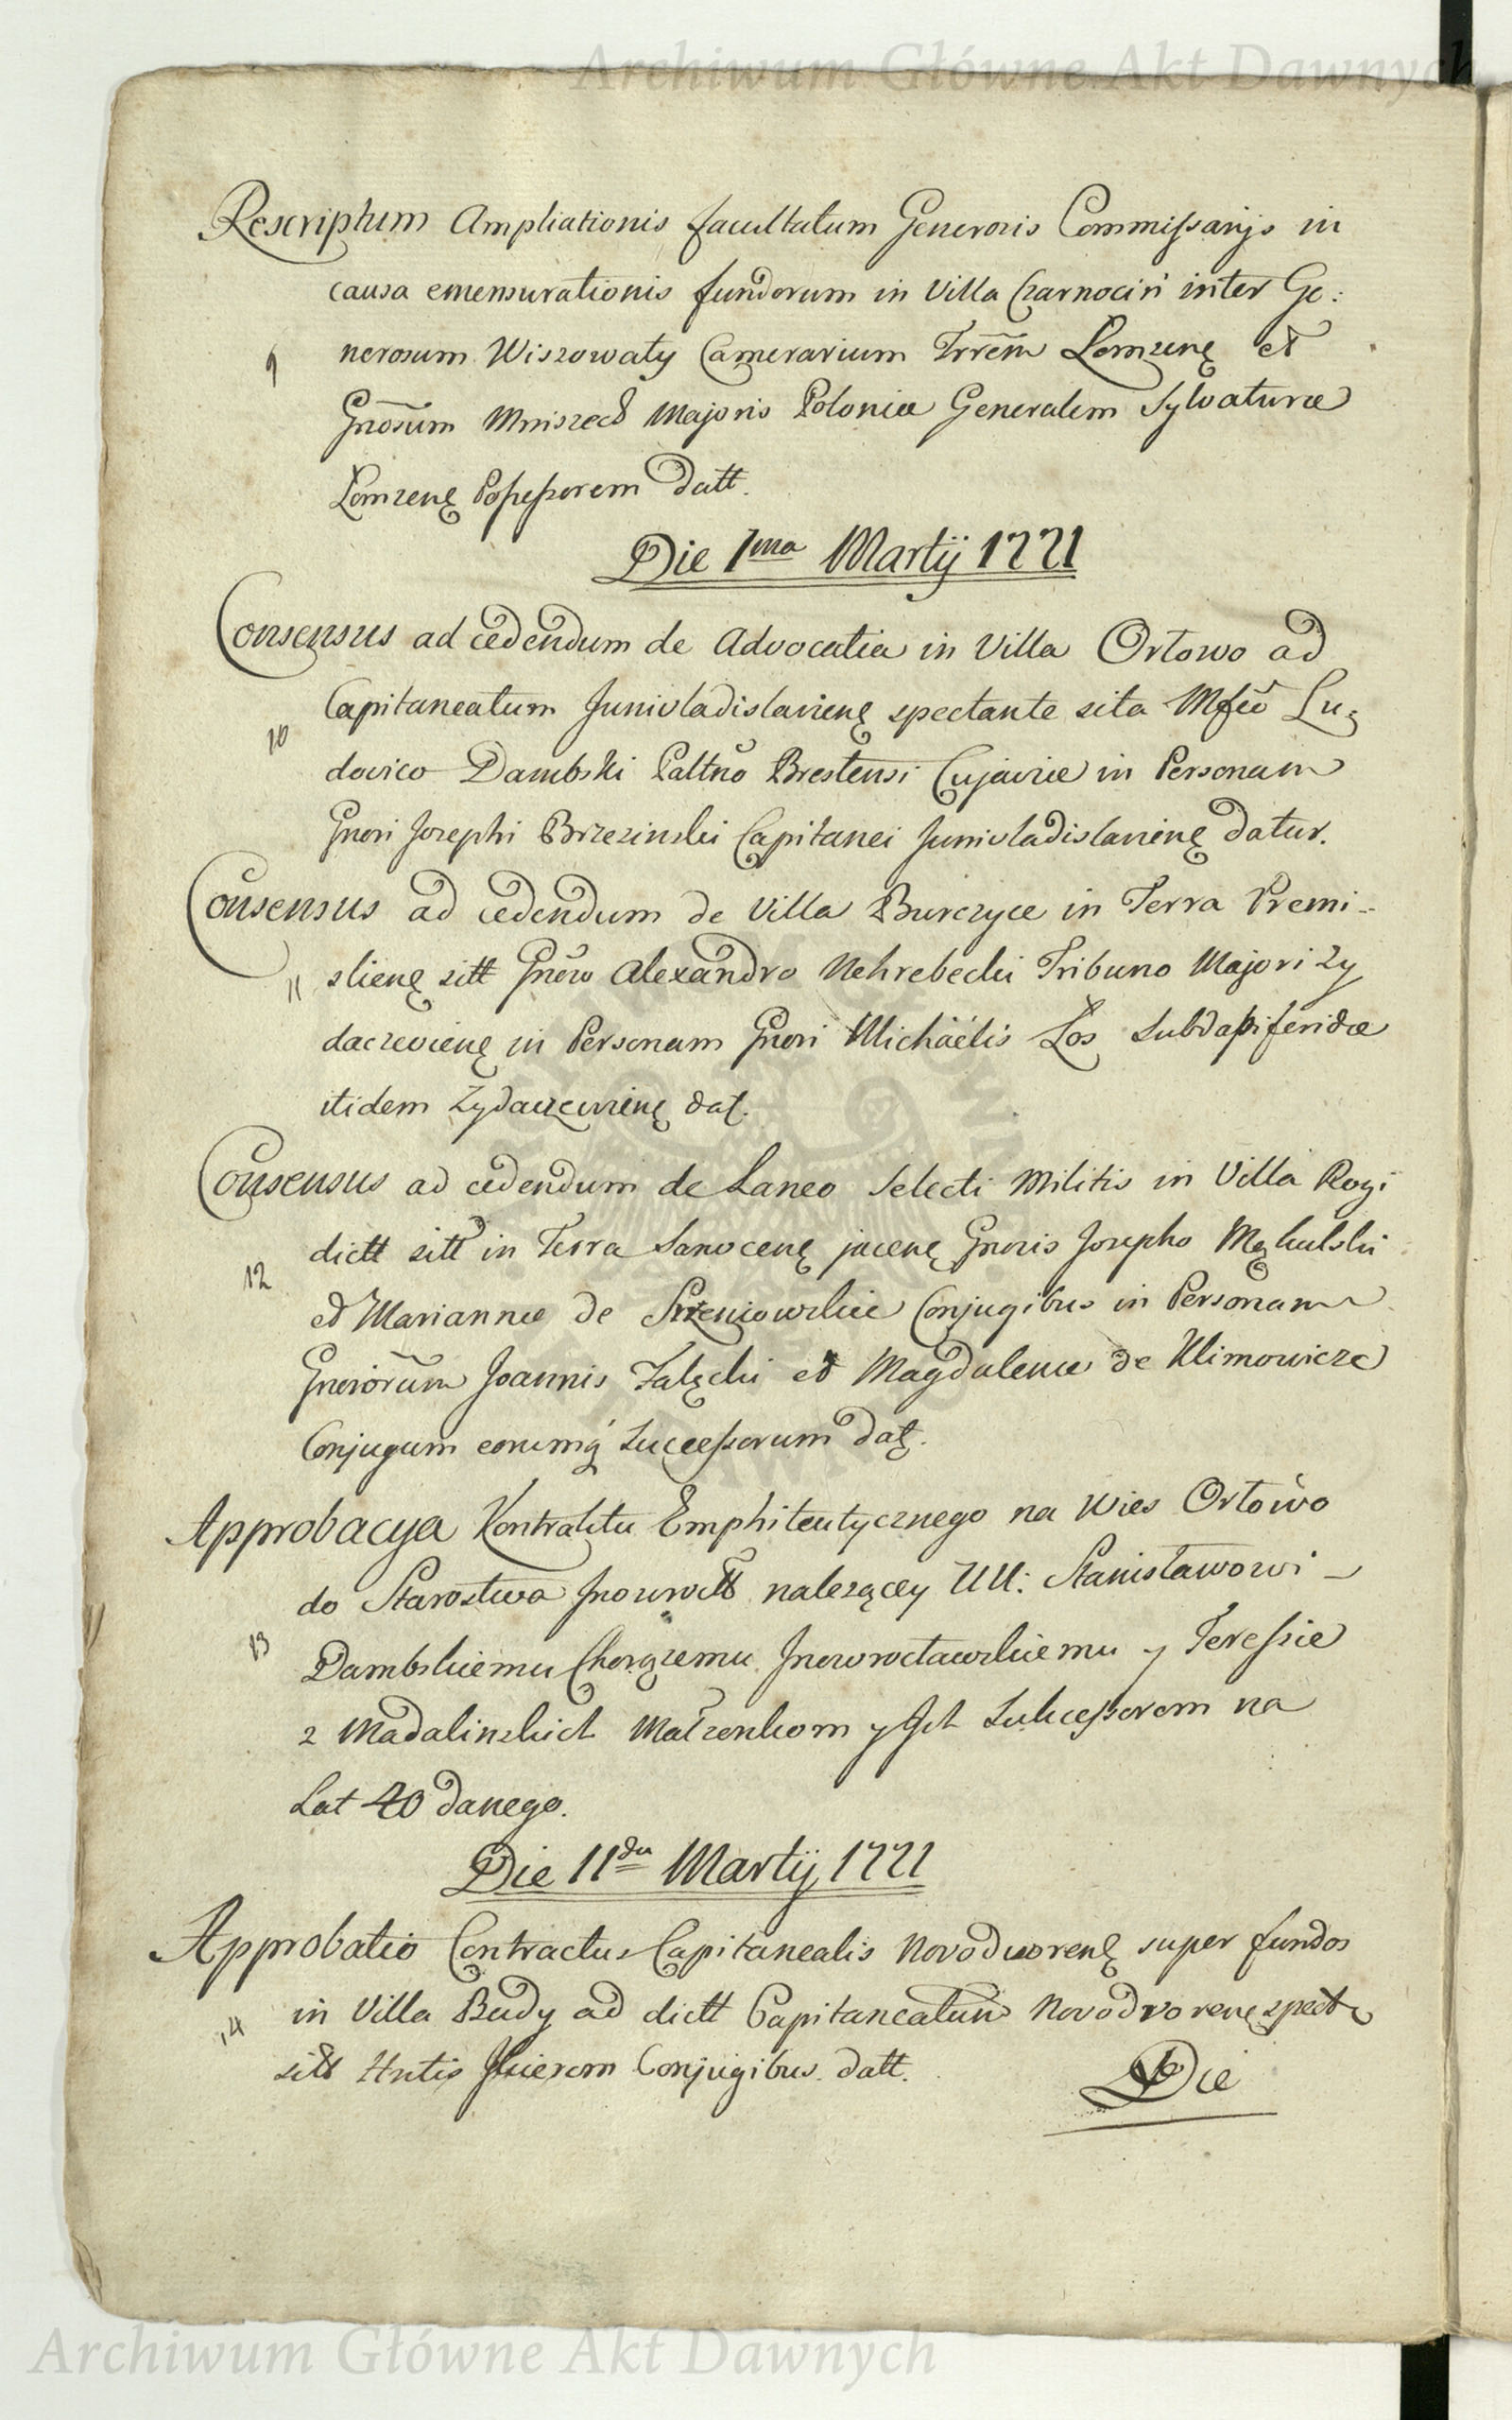 Archiwum Główne Akt Dawnych
Rescriptum Ampliationis facultatum Generosis Commissarijs in
causa emensurationis fundorum in Villa Czarnocin inter Ge:
9 nerosum Wiszowaty Camerarium Trrēm Łomzenę et
Gnōsum Mniszech Majoris Poloniæ Generalem Sylvaturæ
Łomzenę Possessorem datt.
Die 1ma Martij 1771
Consensus ad cedendum de Advocatia in Villa Orłowo ad
Capitaneatum Junivladislavienę spectante sita Mfco Lu=
10 dovico Dambski Paltno Brestensi Cujaviæ in Personam
Gnori Josephi Brzezinski Capitanei Junivladislavienę datur.
Consensus ad cedendum de Villa Burczyce in Terra Premi=
11 slienę sitt Gnōro Alexandro Nehrebecki Tribuno Majori Zy
daczovienę in Personam Gnori Michaëlis Łos Subdapiferidæ
itidem Zydaczevienę dat.
Consensus ad cedendum de Laneo Selecti Militis in Villa Rogi
dictt sitt in Terra Sanocenę jacenę Gnoris Josepho
12 et Mariannæ de Conjugibus in Personam
Gnerorum Joannis Załęcki et Magdalenæ de Klimowicze
Conjugum eorumq́ Successorum datę.
Approbacya Kontraktu Emphiteutycznego na Wies Orłowo
do Starostwa Inowrocłł nalezący UU: Stanisławowi –
13 Dambskiemu Chorązemu Inowrocławskiemu y Teressie
z Madalinskich Małzonkom y Ich Sukcessorom na
Lat 40 danego.
Die 11da Martij 1771
Approbatio Contractus Capitanealis Novodworenę super fundos
in Villa Budy ad dictt Capitaneatum Novodvorenę spectt
14 sitt Hntis Conjugibus datt.
Die
Archiwum Główne Akt Dawnych